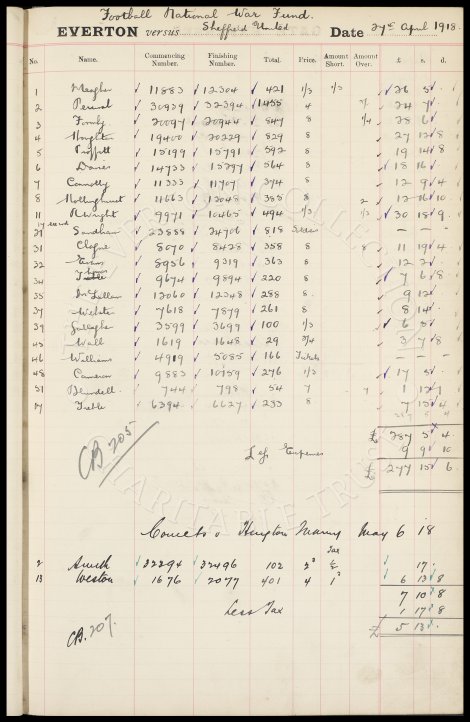 Football National War Fund.
EVERTON versus Sheffield United Date 27th April 1918.
No. Name. Commencing Number. Finishing Number. Total. Price. Amount Short. Amount Over. £ s. d.
1 Meagher 11883 12304 421 1/3 1/3 26 5
2 Percival 30939 32394 1455 4 24 7
3 Formby 20097 20944 847 8 1/4 28 6
4 Houghton 19400 20229 829 8 27 12 8
5 Proffitt 15199 15791 592 8 19 14 8
6 Davies 14733 15297 564 8 18 16
7 Connolly 11333 11707 374 8 12 9 4
8 Hollinghurst 11663 12048 385 8 2 12 16 10
11 R Wright 9971 10465 494 1/3 1/3 30 18 9
29 Sandham 23888 24706 818 – – –
31 Clegne 8070 8428 358 8 8 11 19 4
32 Evans 8956 9319 363 8 12 2
34 9674 9894 220 8 7 6 8
35 McLellan 12060 12348 288 8 9 12
37 Webster 7618 7879 261 8 8 14
39 Gallagher 3599 3699 100 1/3 6 5
45 Wall 1619 1648 29 2/4 3 7 8
46 Williams 4919 5085 166 Tickets – – –
48 Cameron 9883 10159 276 1/3 17 5
51 Blundell 744 798 54 7 7 1 12 1
57 Treble 6394 6627 233 8 7 15 4
£ 287 5 4
Expenses 9 9 10
£ 277 15 6
CB 205
May 6 18
Tax
2 Smith 32294 32496 102 2 17
13 Weston 1676 2077 401 4 1 6 13 8
7 10 8
Less Tax 1 17 8
£ 5 13
CB. 207.
EVERTON COLLECTION
CHARITABLE TRUST